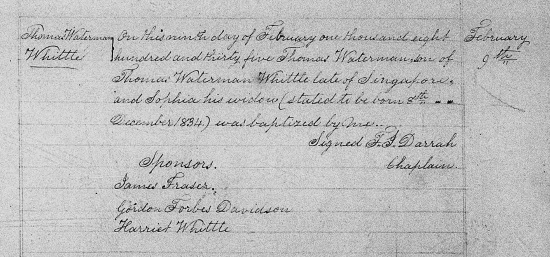 Thomas Waterman Whittle
On this ninth day of February one thousand eight
hundred and thirty five Thomas Waterman son of
Thomas Waterman Whittle late of Singapore.
and Sophia his widow (stated to be born 8th
December 1834) was baptized by me.
Signed F. J. Darrah
Chaplain.
February 9th
Sponsors.
James Fraser.
Gordon Forbes Davidson
Harriet Whittle